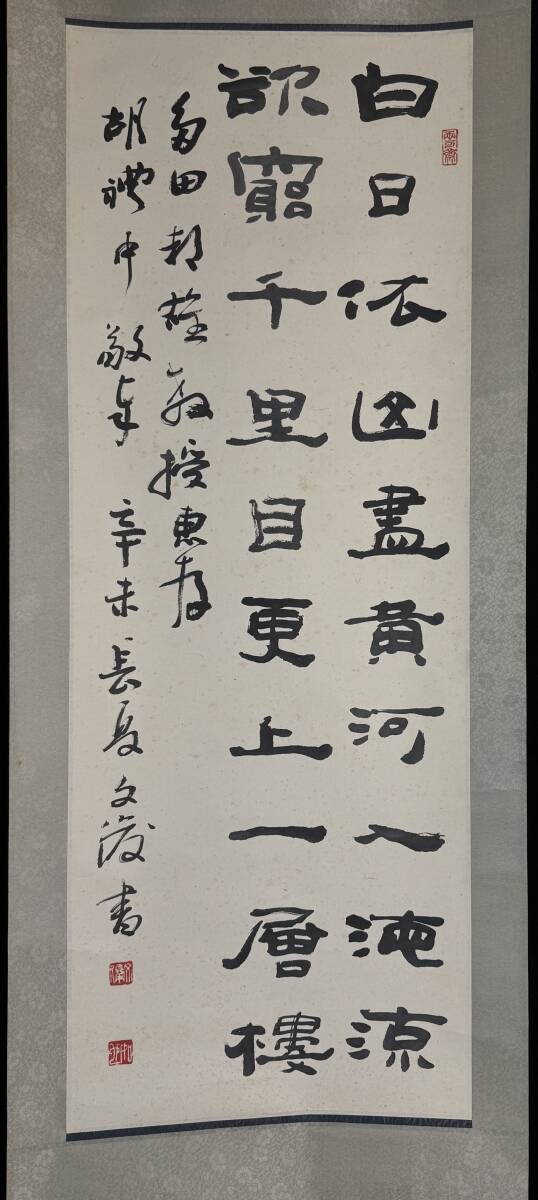 白日依山盡黄河入海流
欲窮千里目更上一層樓
多田邦雄教授惠存
胡禮中敬奉 辛未長夏文書